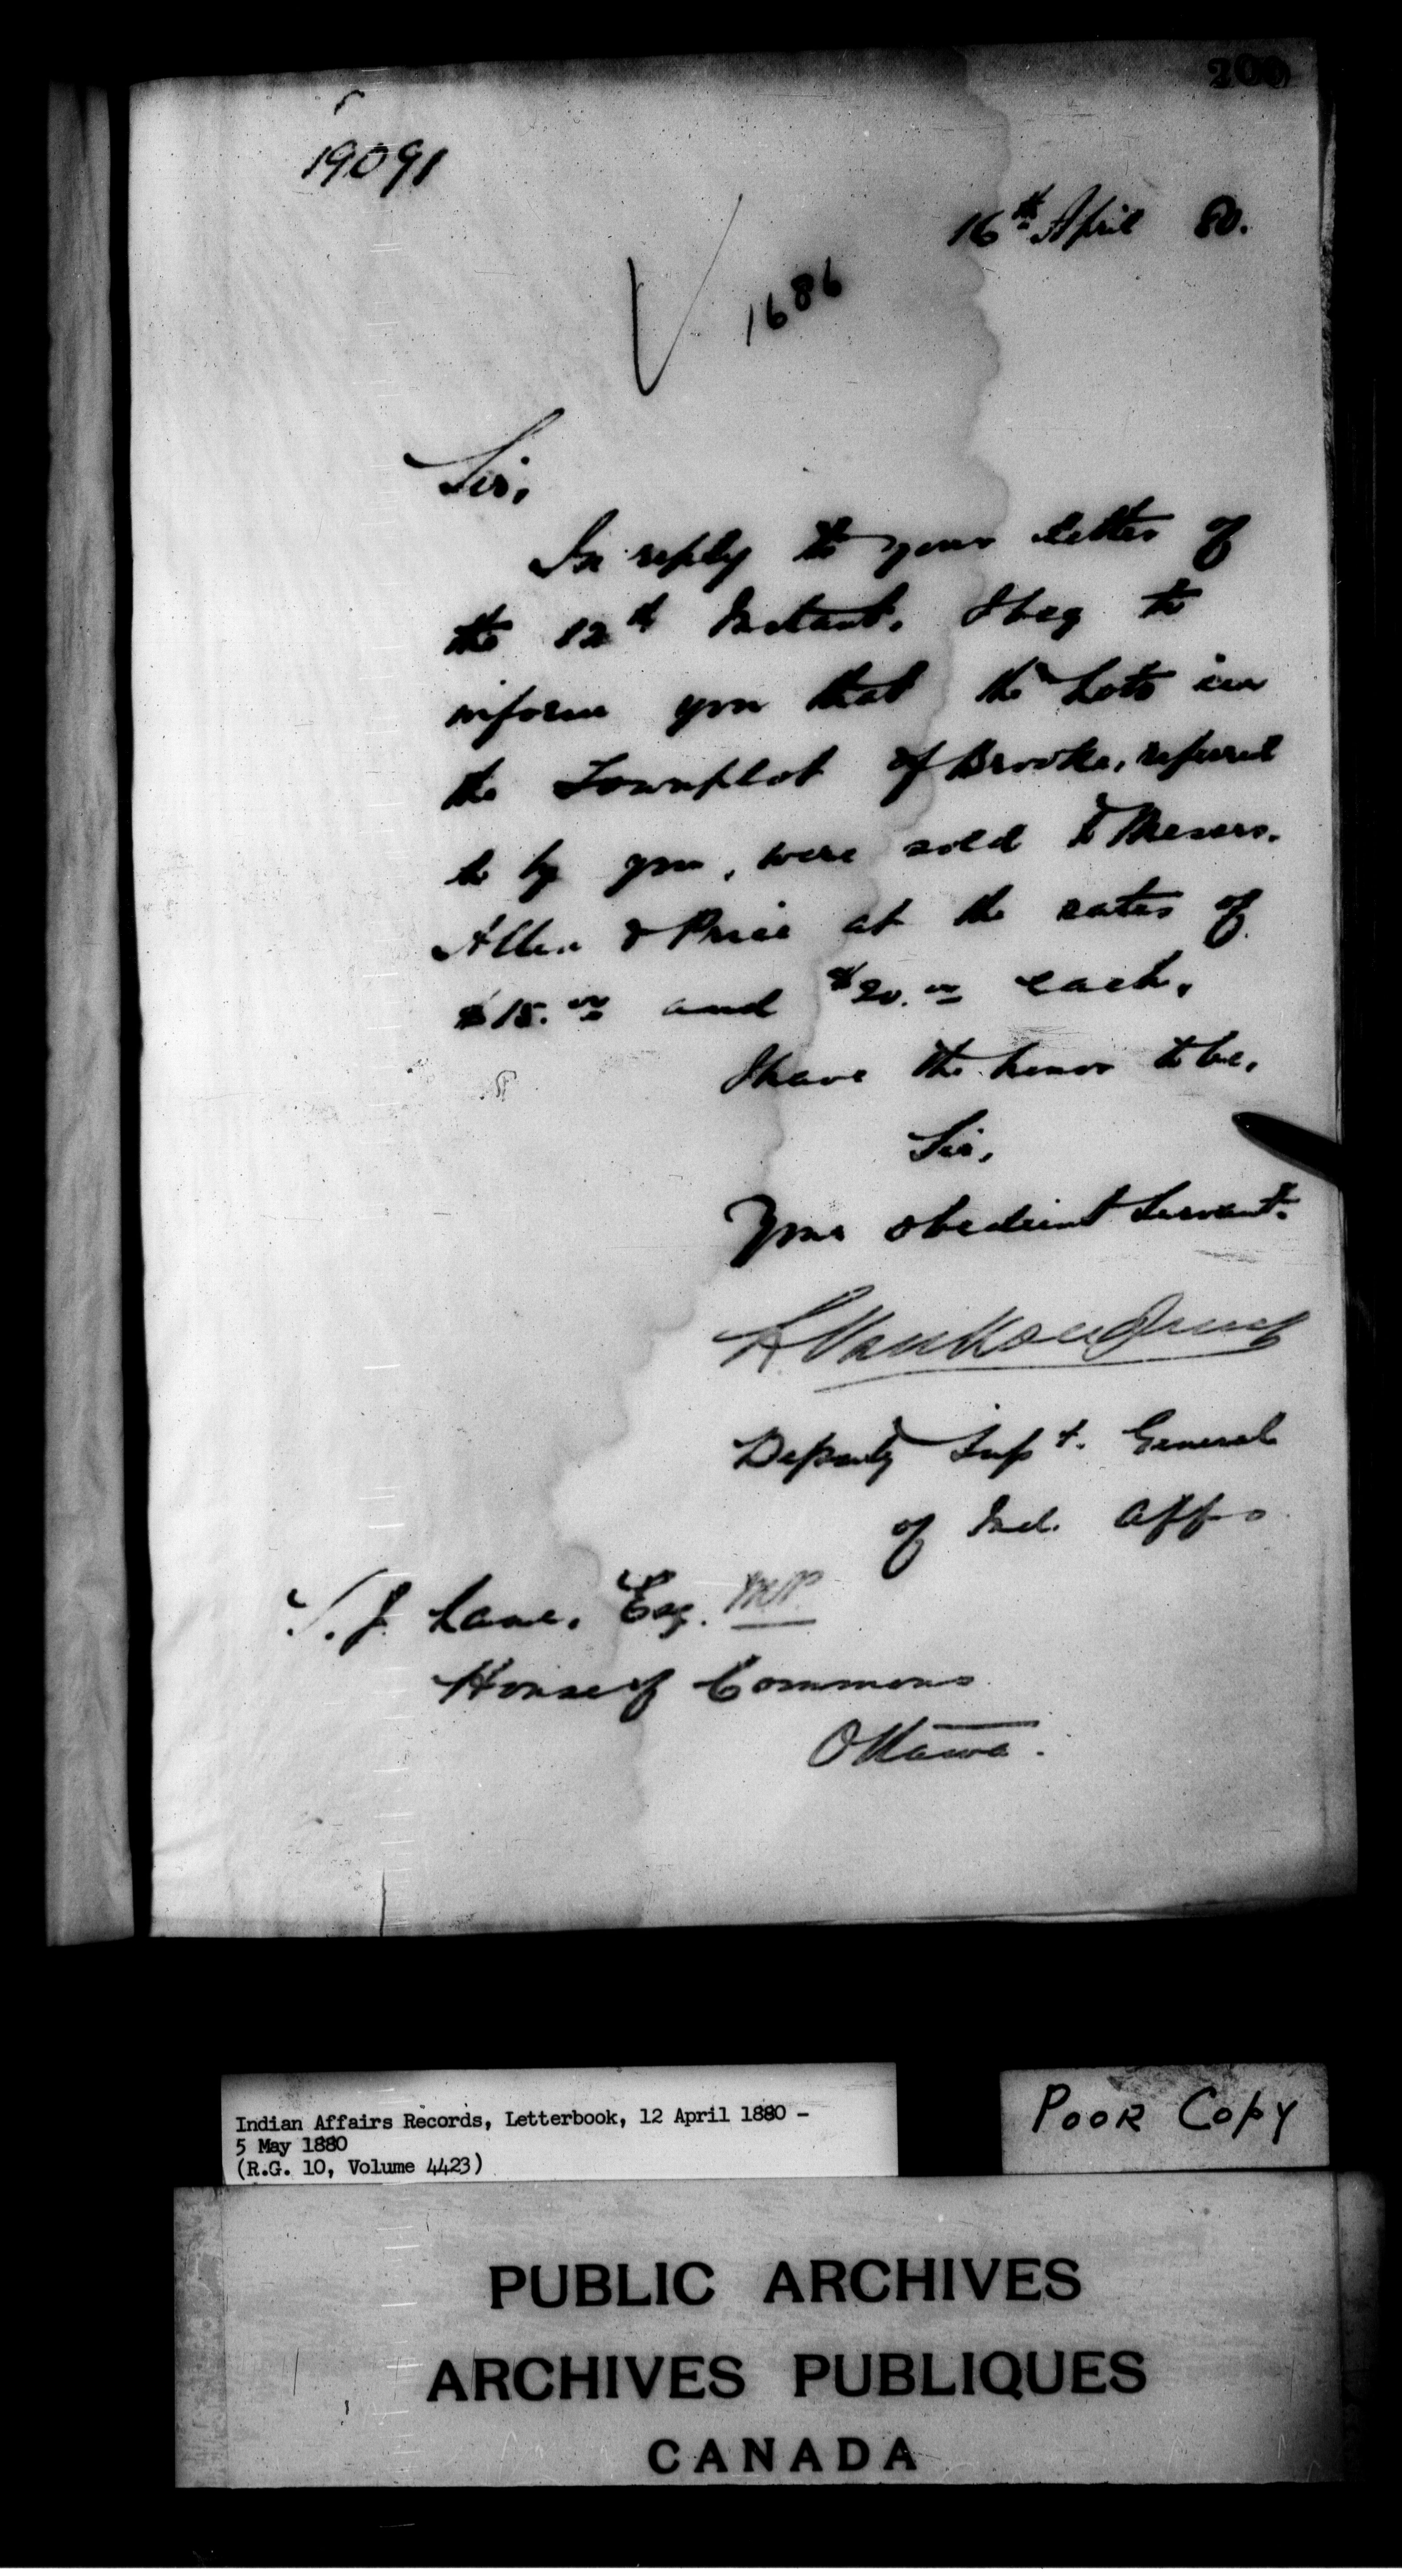 200
19091
16th April 80.
1686
Sir,
In reply to your letter of
the 12th Instant, I beg to
inform you that the Lots in
the Townplot of Brooke, referred
to by you, were sold to Messrs.
Allen & Price at the rates of
$15.00 and $20.00 each.
I have the honor to be,
Sir,
Your obedient Servant.
L VanKoughnet
Deputy Supt. General
of Ind. Affs
T. J. Lane, Esq. MP.
House of Commons
Ottawa.
Indian Affairs Records, Letterbook, 12 April 1880 -
5 May 1880
(R.G. 10, Volume 4423)
POOR COPY
PUBLIC ARCHIVES
ARCHIVES PUBLIQUES
CANADA